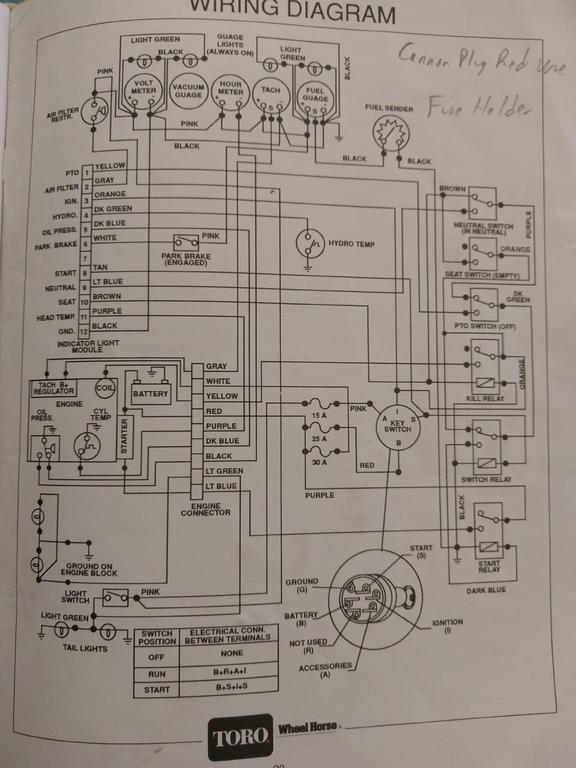 WIRING DIAGRAM
Cannon Plug Red Wire
Fuse Holder
LIGHT GREEN
BLACK
GUAGE
LIGHTS
(ALWAYS ON)
LIGHT
GREEN
BLACK
PINK
VOLT
METER
VACUUM
GUAGE
HOUR
METER
TACH
FUEL
GUAGE
AIR FILTER
RESTR.
S
S
FUEL SENDER
PINK
BLACK
BLACK
BLACK
PTO 1 YELLOW
AIR FILTER 2 GRAY
IGN. 3 ORANGE
HYDRO. 4 DK GREEN
OIL PRESS. 5 DK BLUE
PARK BRAKE 6 WHITE
7
START 8 TAN
NEUTRAL 9 LT BLUE
SEAT 10 BROWN
HEAD TEMP. 11 PURPLE
GND. 12 BLACK
INDICATOR LIGHT
MODULE
PINK
PARK BRAKE
(ENGAGED)
HYDRO TEMP
BROWN
NEUTRAL SWITCH
(IN NEUTRAL)
PURPLE
ORANGE
SEAT SWITCH (EMPTY)
DK
GREEN
PTO SWITCH (OFF)
KILL RELAY
ORANGE
SWITCH RELAY
BLACK
START
RELAY
DARK BLUE
TACH B+
REGULATOR
COIL
BATTERY
ENGINE
OIL
PRESS.
CYL
TEMP
STARTER
GRAY
WHITE
YELLOW
RED
PURPLE
DK BLUE
BLACK
LT GREEN
LT BLUE
ENGINE
CONNECTOR
15 A
25 A
30 A
PINK
RED
PURPLE
I
A
S
KEY
SWITCH
B
GROUND ON
ENGINE BLOCK
LIGHT
SWITCH
PINK
LIGHT GREEN
TAIL LIGHTS
START
(S)
GROUND
(G)
BATTERY
(B)
NOT USED
(R)
ACCESSORIES
(A)
IGNITION
(I)
SWITCH
POSITION
ELECTRICAL CONN.
BETWEEN TERMINALS
OFF NONE
RUN B+R+A+I
START B+S+I+S
TORO Wheel Horse®